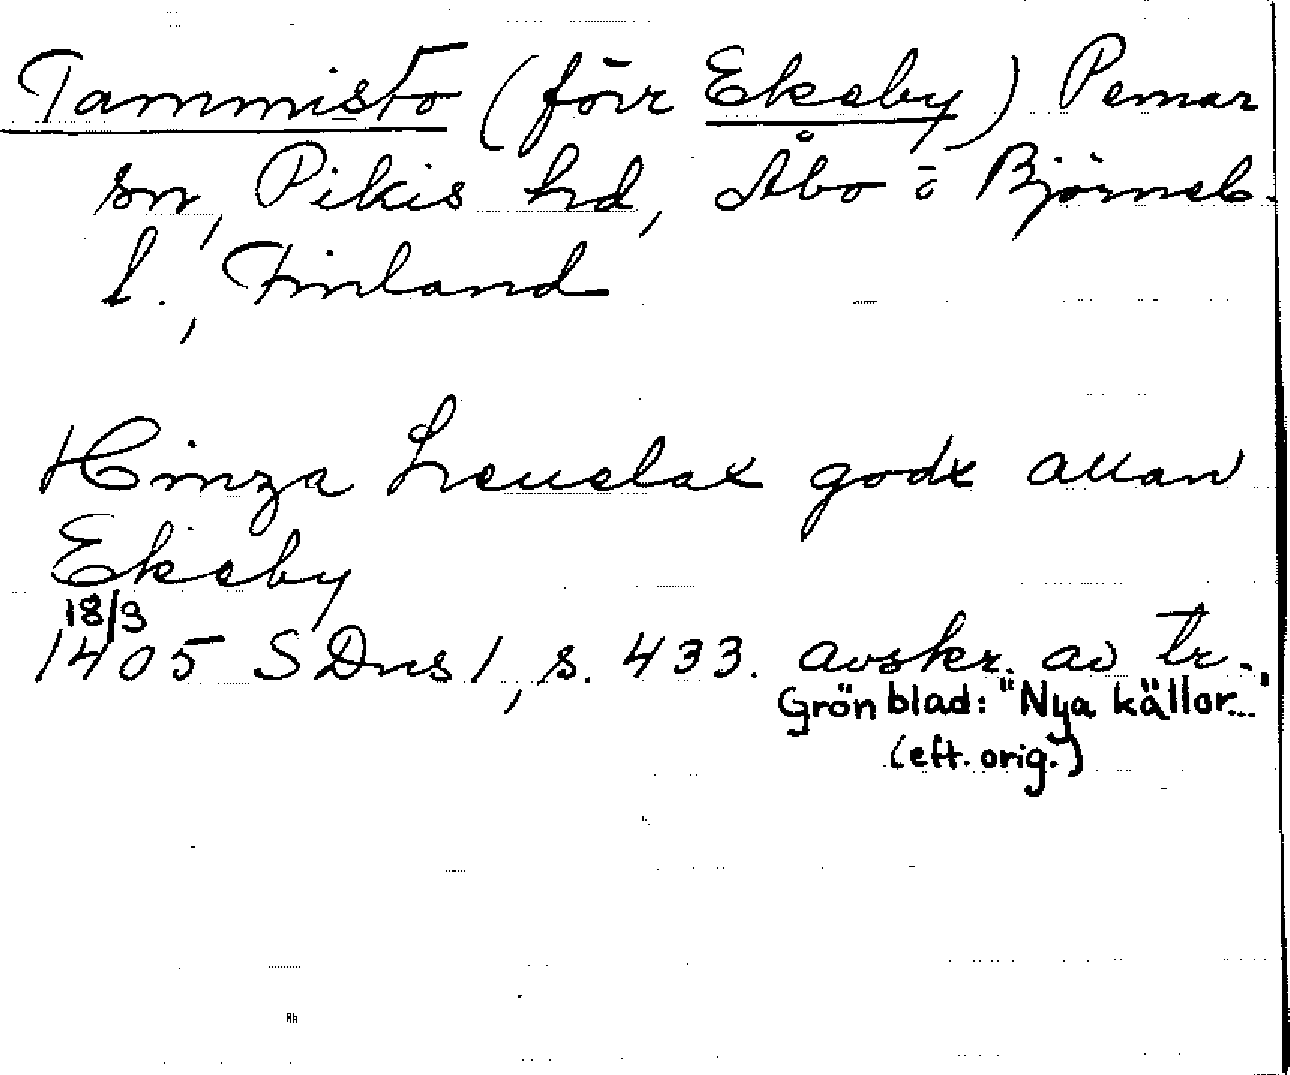 Tammisto (förr Ekeby) Pemar
sn, Pikis hd, Åbo o Björneb.
l., Finland
Hinza godz allan
Ekeby
18/3
1405 SDns 1, s. 433. avskr. av tr.
Grönblad: "Nya källor..."
(eft. orig.)